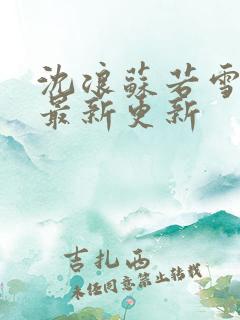 沈浪蘇若雪
最新更新
吉扎西
未经同意禁止转载